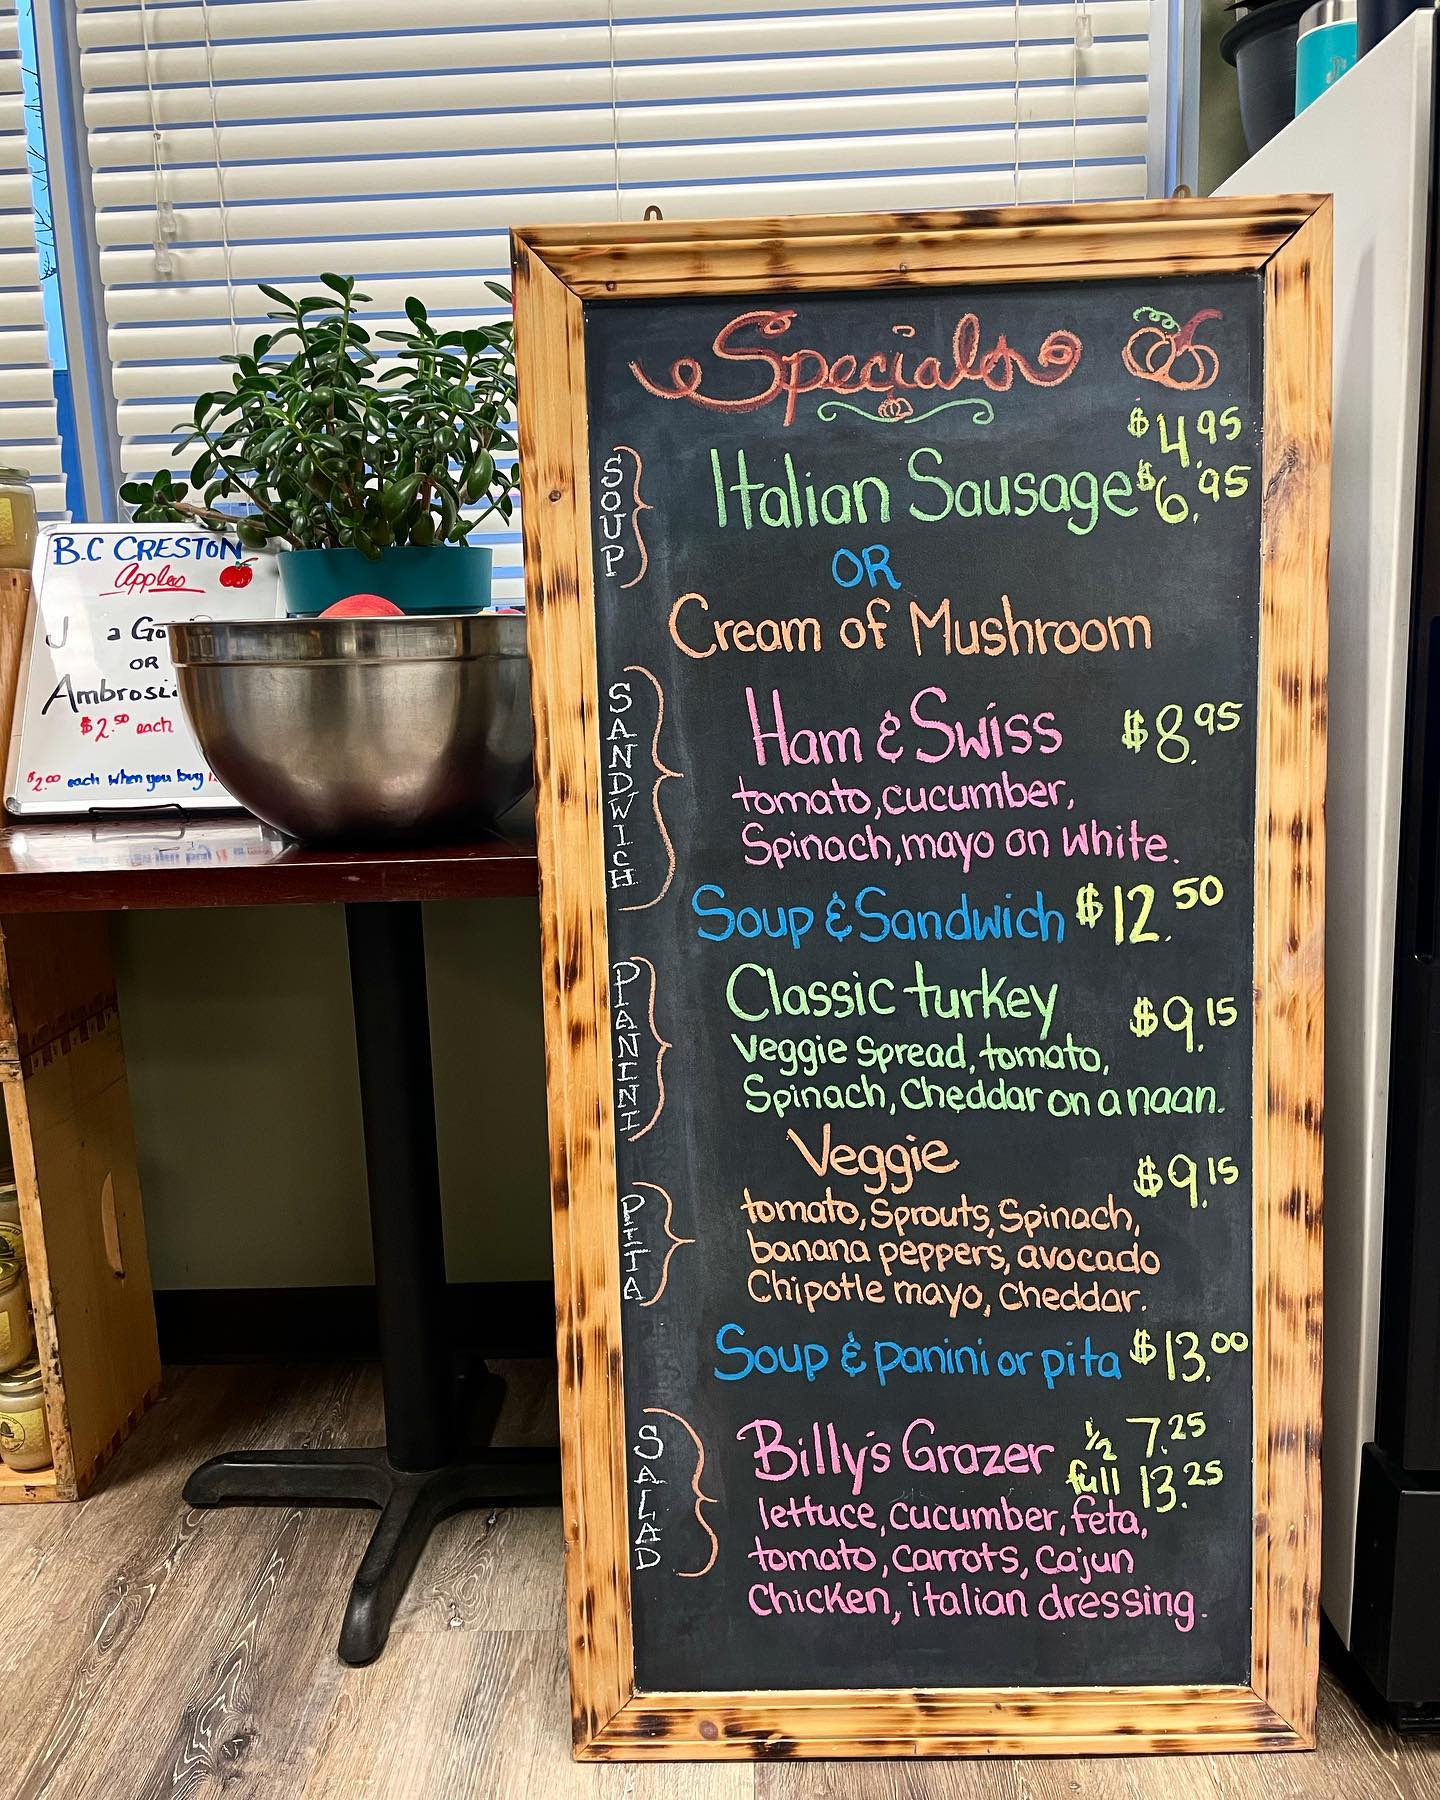 Specials
SOUP
$4.95
Italian Sausage $6.95
OR
Cream of Mushroom
SANDWICH
Ham & Swiss $8.95
tomato, cucumber,
Spinach, mayo on white.
Soup & Sandwich $12.50
PANINI
Classic turkey $9.15
Veggie Spread, tomato,
Spinach, Cheddar on a naan.
PITA
Veggie $9.15
tomato, Sprouts, Spinach,
banana peppers, avocado
Chipotle mayo, cheddar.
Soup & panini or pita $13.00
SALAD
Billy's Grazer ½ 7.25
full 13.25
lettuce, cucumber, feta,
tomato, carrots, cajun
Chicken, italian dressing.
B.C CRESTON
Apples
OR
$2.50 each
$2.00 each when you buy